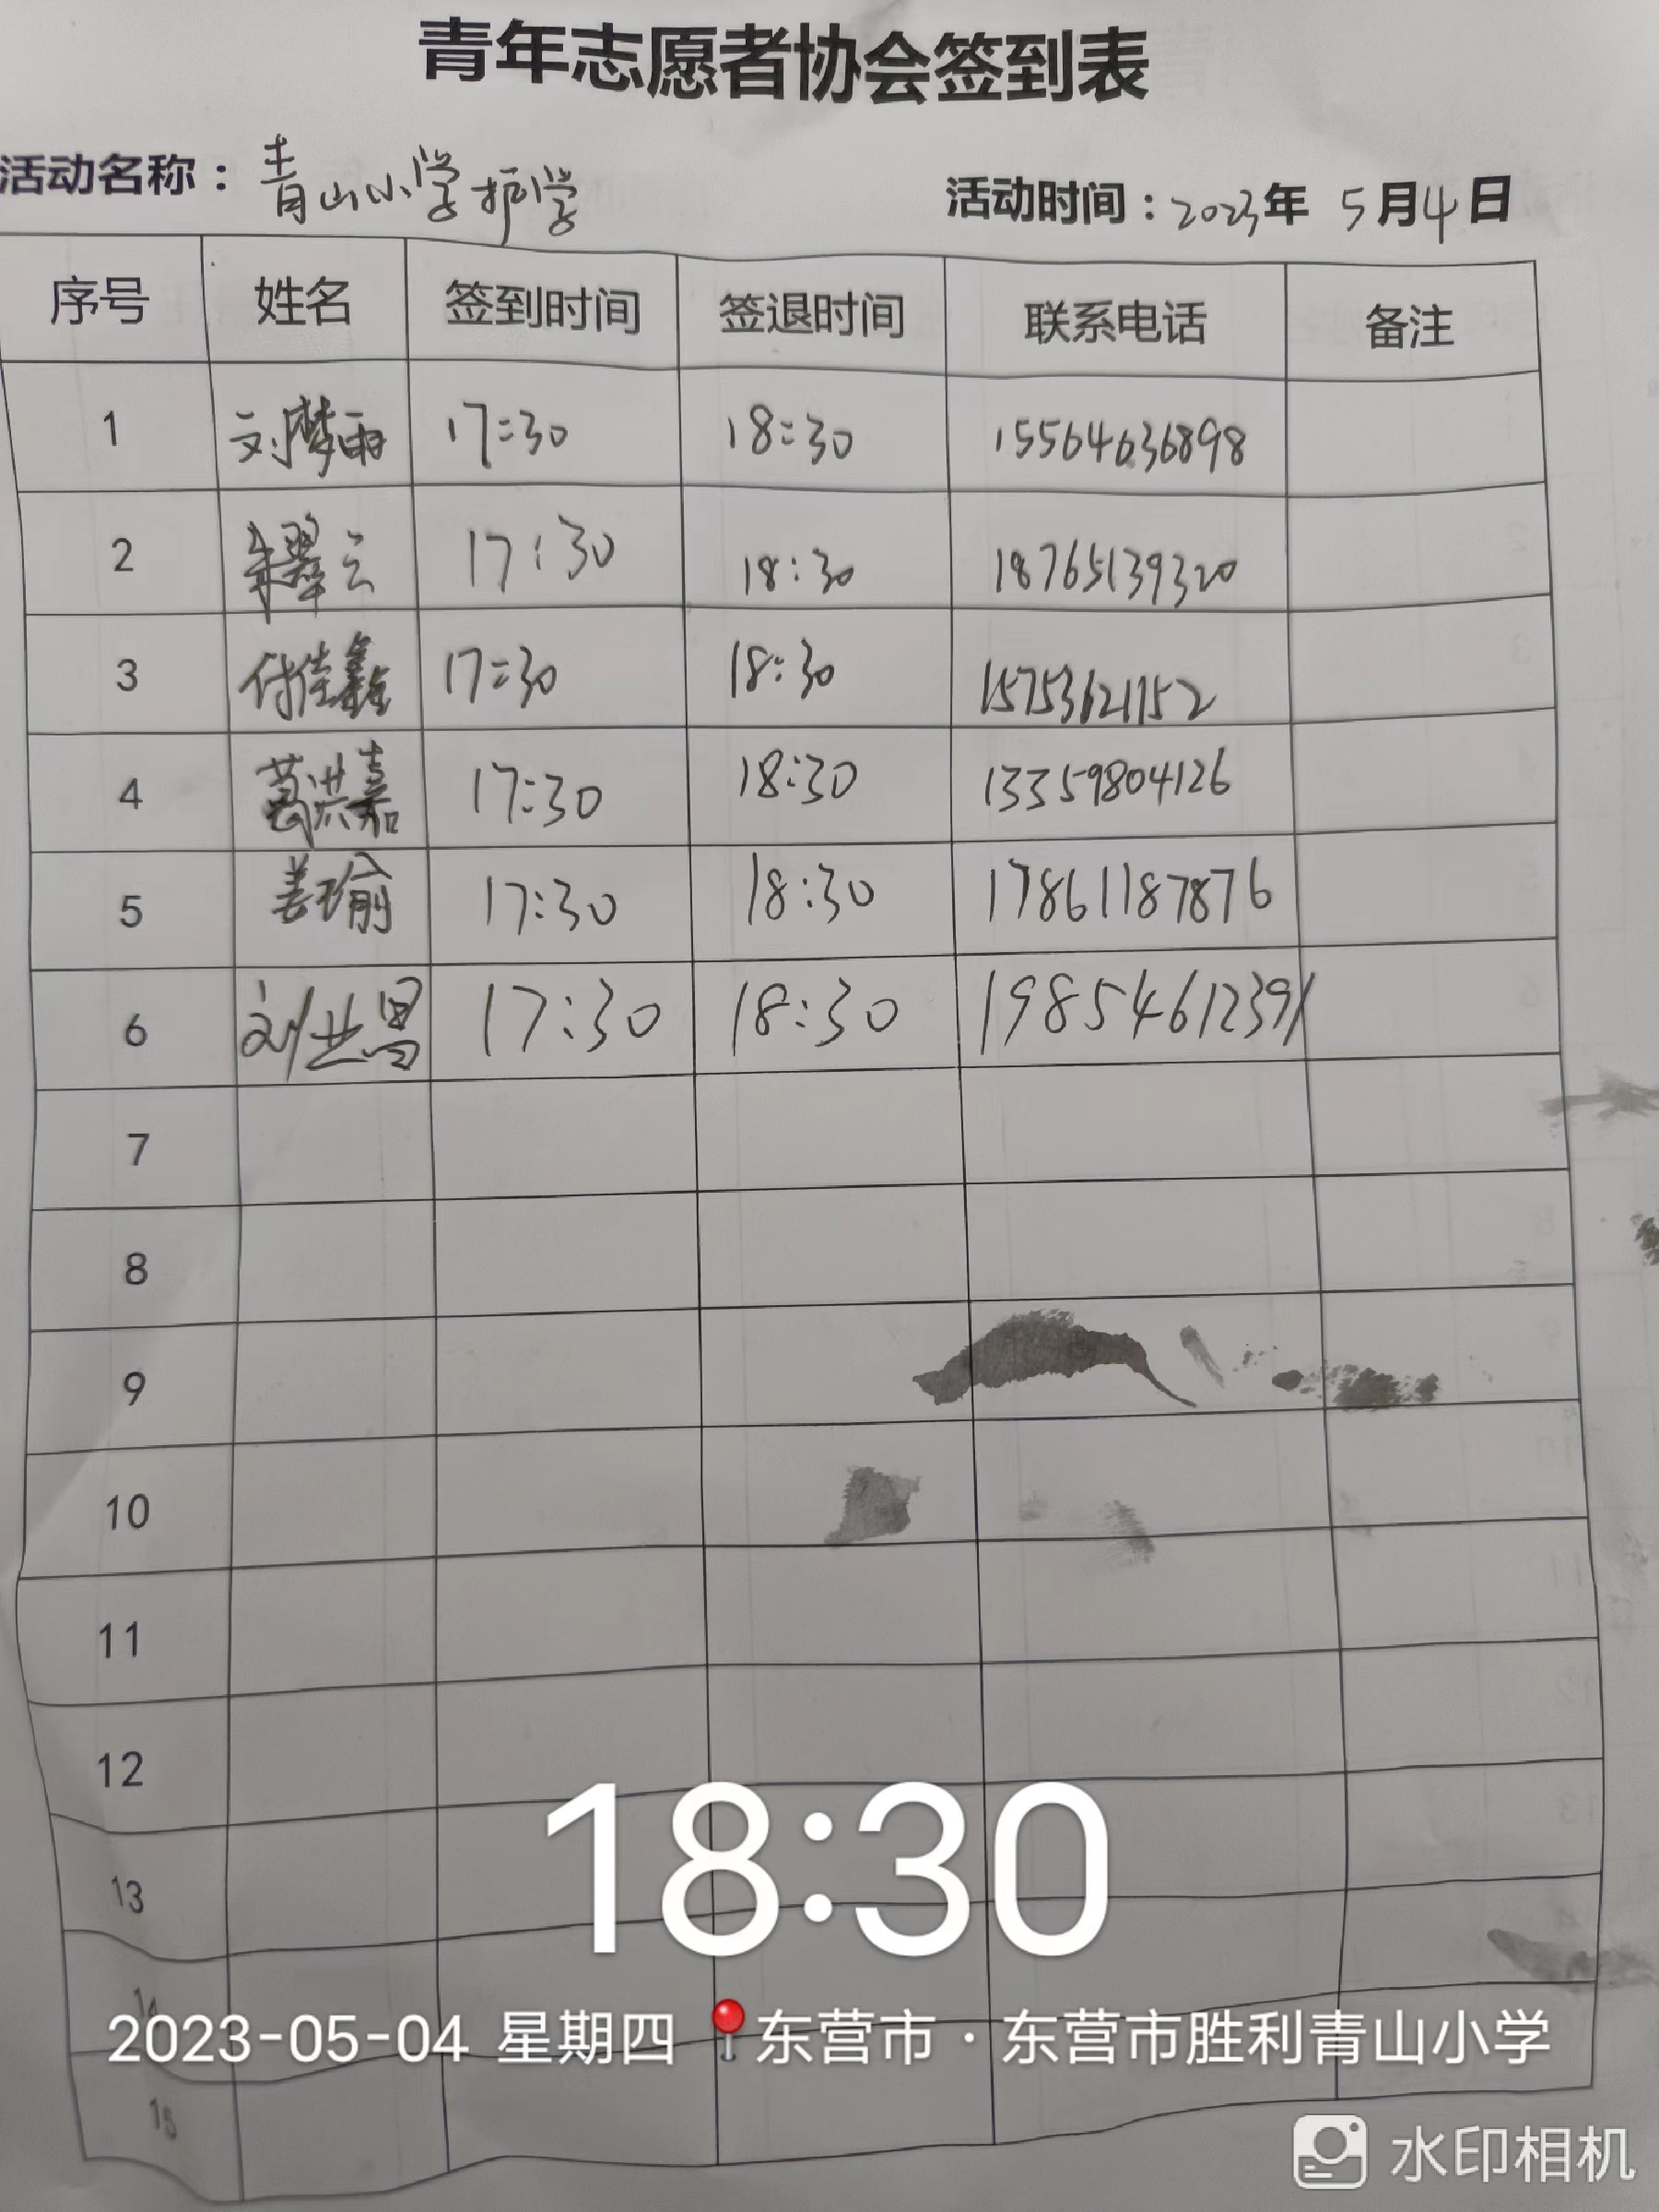 青年志愿者协会签到表
活动名称：青山小学护学 活动时间：2023年 5月4日
序号 姓名 签到时间 签退时间 联系电话 备注
1 刘梦雨 17:30 18:30 15564636898
2 朱翠云 17:30 18:30 18765139320
3 付佳鑫 17:30 18:30 15753621152
4 葛洪嘉 17:30 18:30 13359804126
5 姜瑜 17:30 18:30 17861187876
6 刘业昌 17:30 18:30 19854612391
7
8
9
10
11
12
13
14
15
18:30
2023-05-04 星期四 东营市·东营市胜利青山小学
水印相机